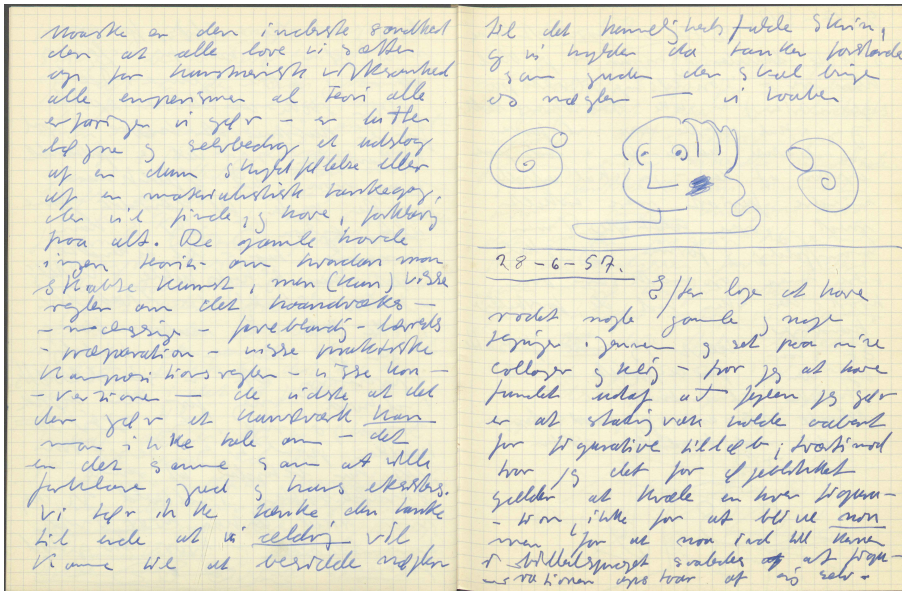 maaske er den inderste sandhed
den at alle love vi sætter
op for kunstnerisk virksomhed
alle en al teori alle
erfaringer vi gør – er lutter
løgne og selvbedrag et udslag
af en dum eller
af en materialistisk tankegang,
der vil finde, og have, forklaring
paa alt. De gamle havde
ingen teorier om hvordan man
skabte kunst, men (kun) visse
regler om det haandværks-
-mæssige – farveblanding – lærreds
-præparation – visse praktiske
kompositionsregler – visse kon-
-ventioner — de vidste at det
der gør et kunstværk kan
man ikke tale om – det
er det samme som at ville
forklare gud og hans eksistens.
Vi tør ikke tænke den tanke
til ende at vi aldrig vil
komme til at besidde nøglen
til det hemmelighedsfulde skrin,
og vi hylder da tanken
som guden der skal bringe
os nøglen — vi
28-6-57.
Efter lige at have
rodet nogle gamle og nye
tegninger igennem og set paa mine
collager og – tror jeg at have
fundet udaf at jeg gør
er at stadig være
for figurative tilløb; tværtimod
tror jeg det for øjeblikket
gælder at kvæle en hver figura-
-tion, ikke for at blive non
men for at naa ind til
i billedsproget saaledes at figu-
-rationen opstaar af sig selv.